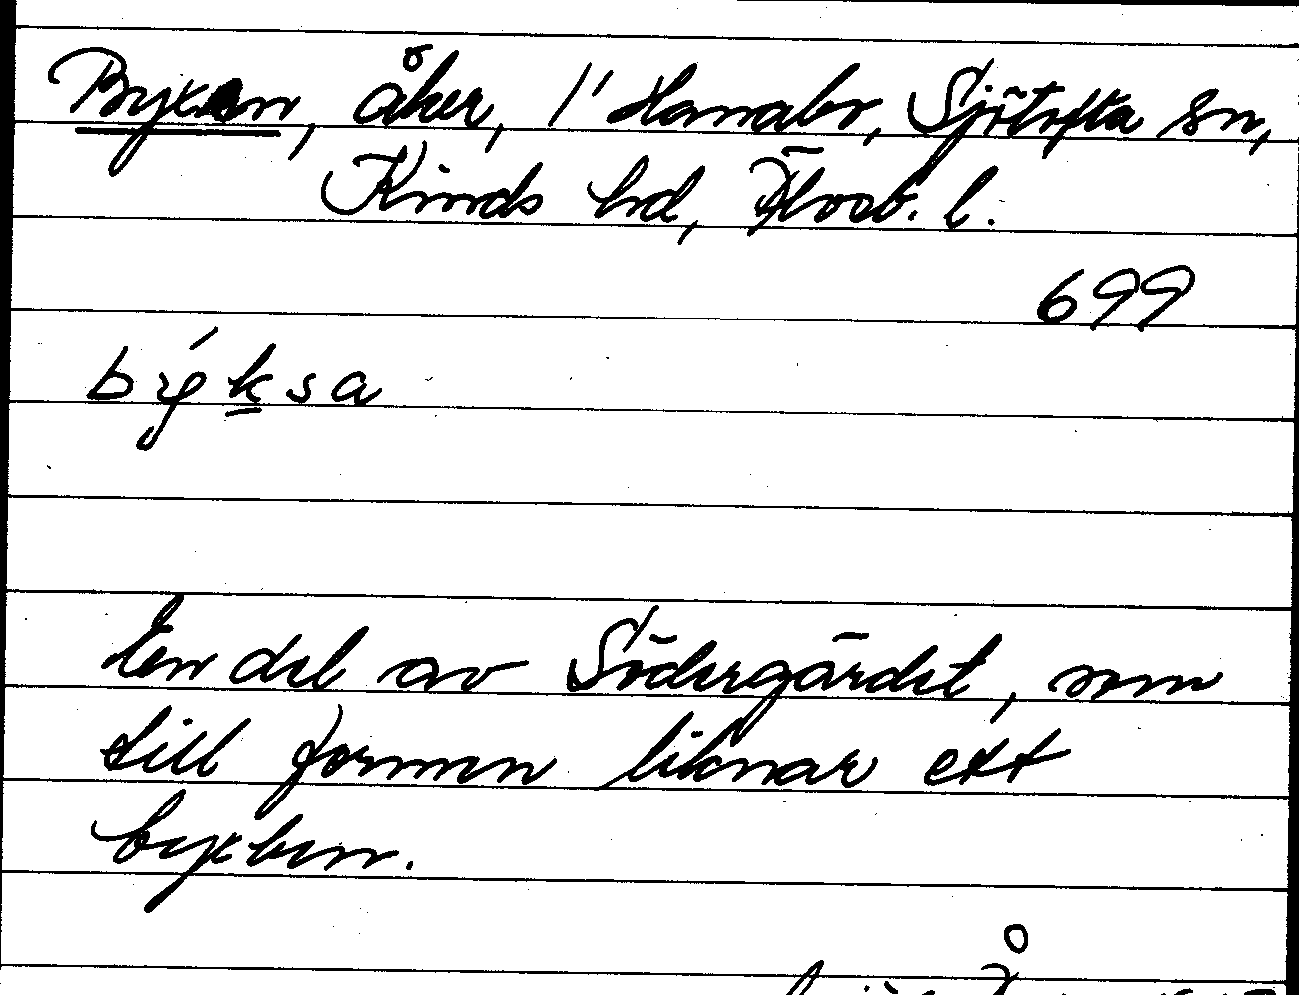 Byxan, åker, 1' Hanabo, Sjötofta sn,
Kinds hd, Älvsb. l.
699
býksa
En del av Södergärdet, som
till formen liknar ett
byxben.